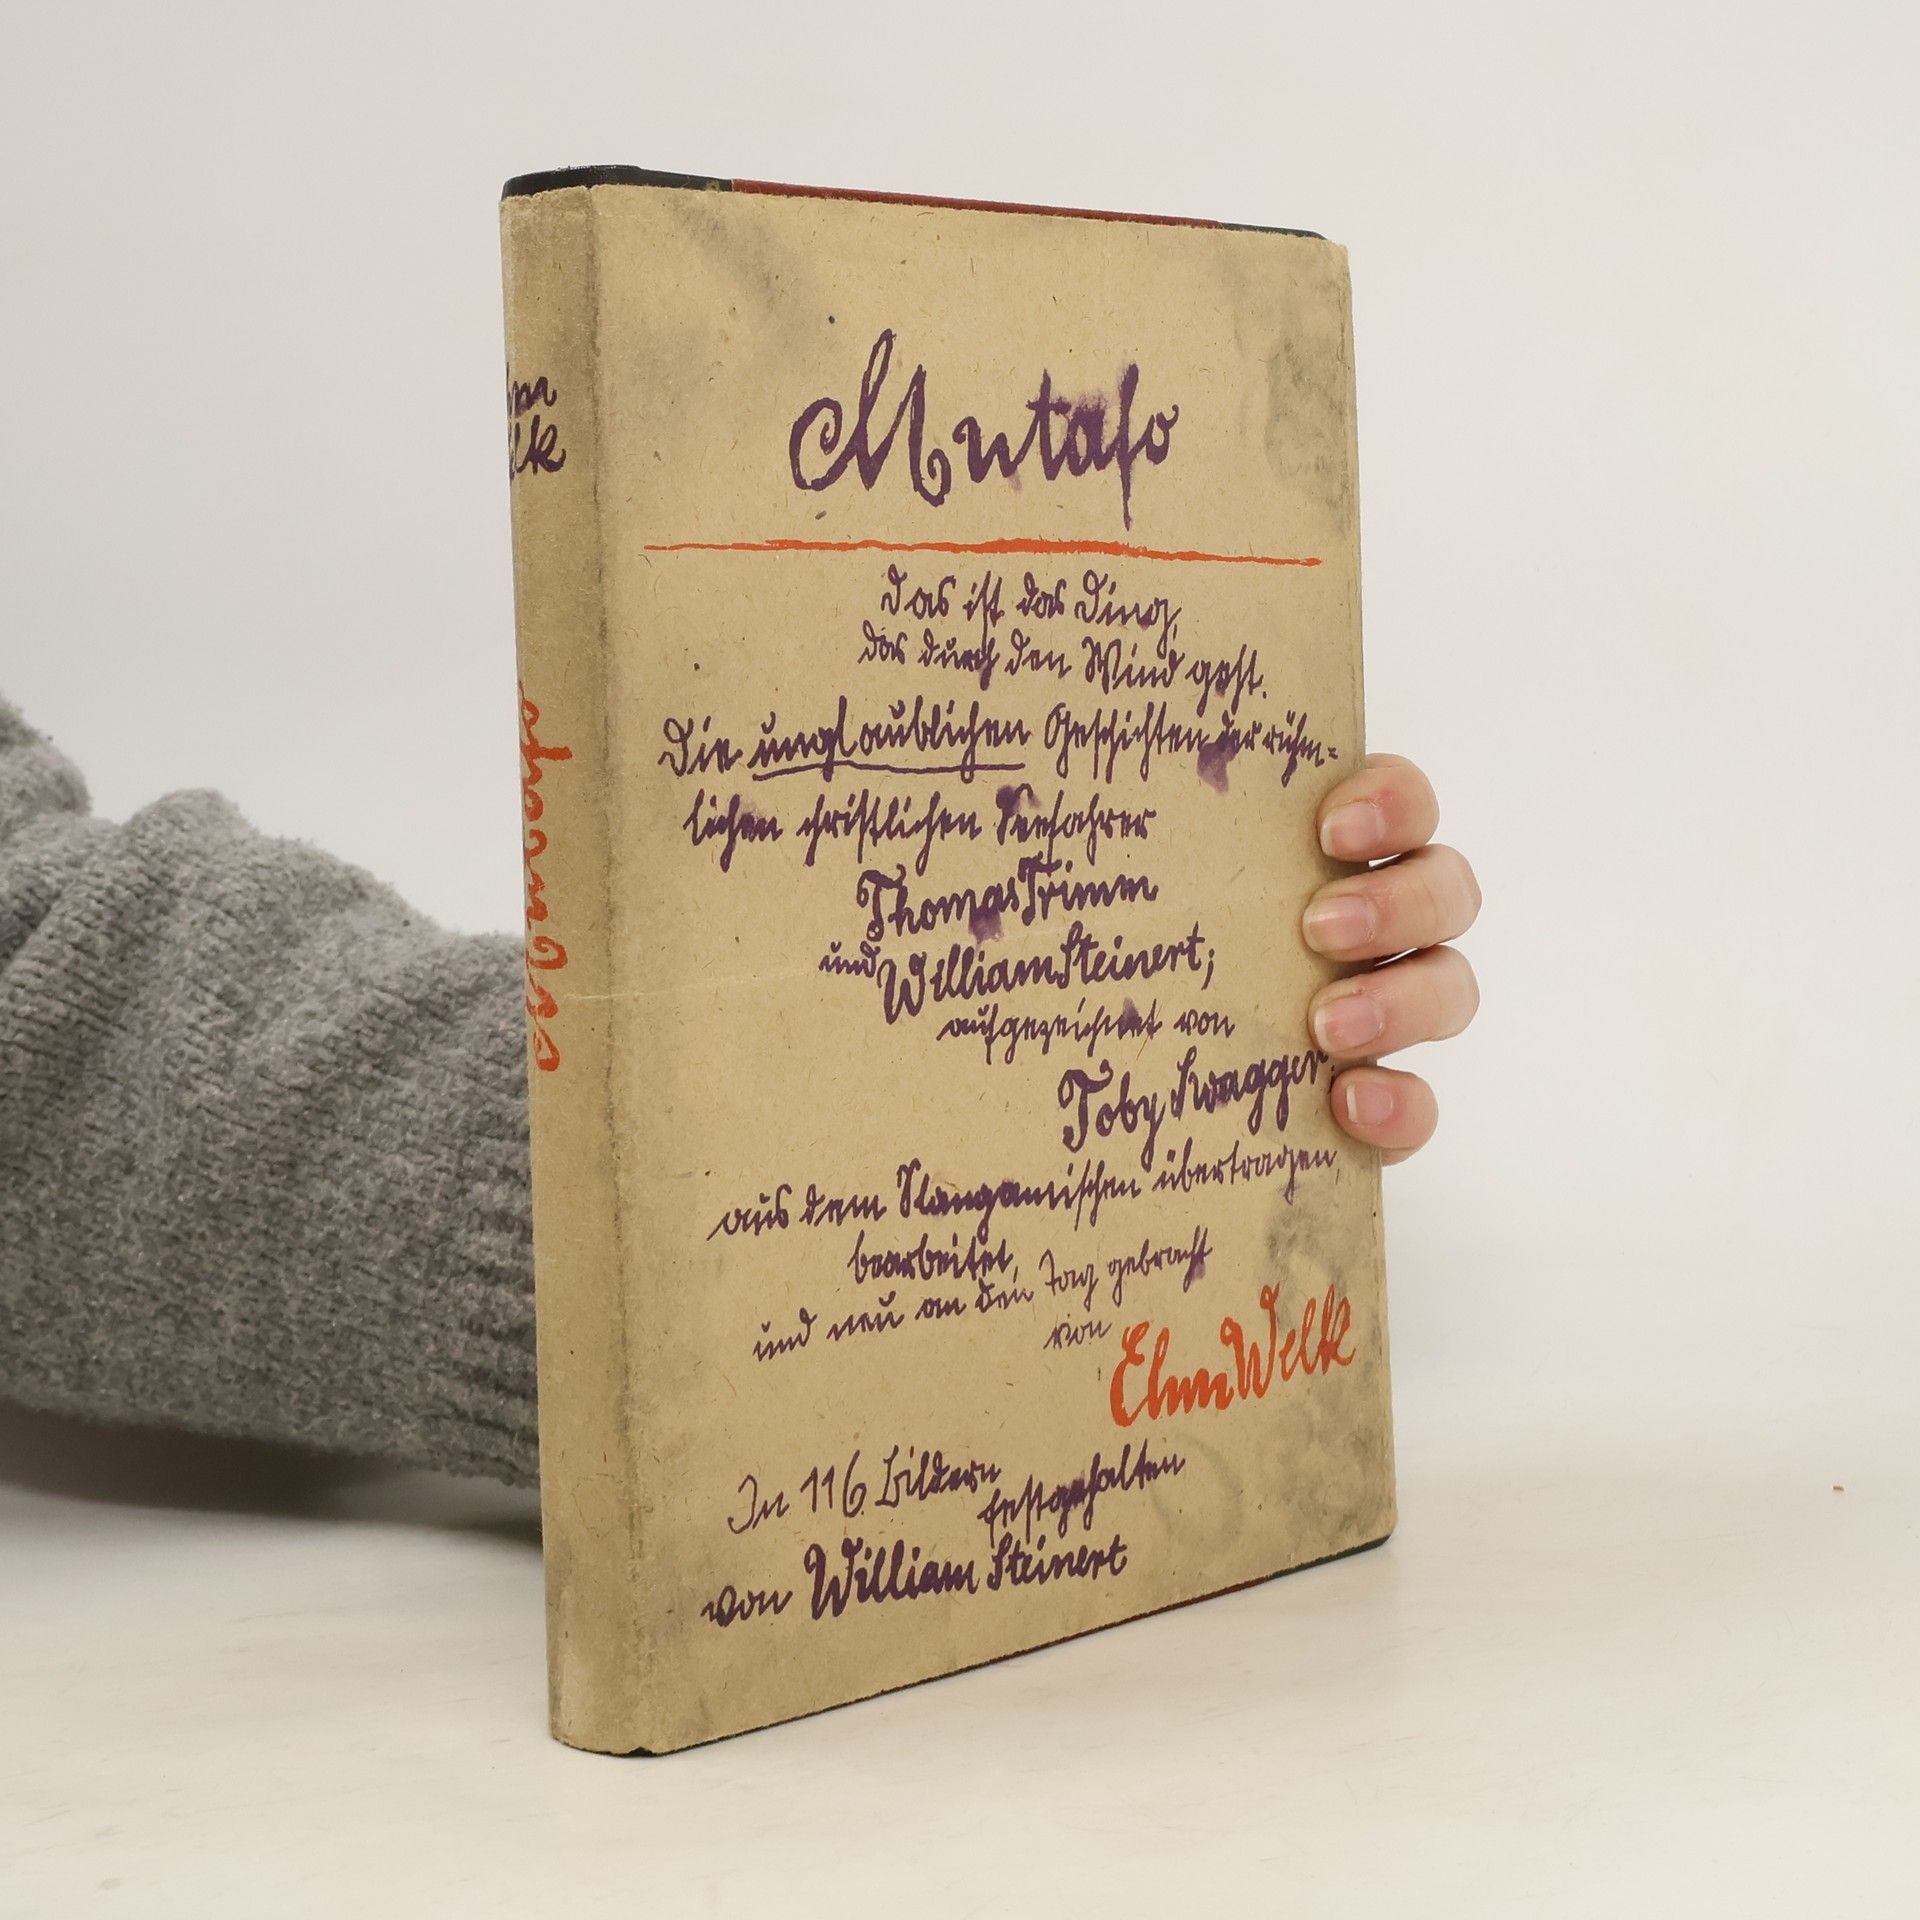 Elm
Welk
Mutafo
Mutafo
Das ist das Ding,
das durch den Wind geht.
Die unglaublichen Geschichten der rühm=
lichen christlichen Seefahrer
Thomas Trimm
und William Steinert;
aufgezeichnet von
Toby Swagger.
aus dem Slanganischen übertragen,
bearbeitet,
und neu an den Tag gebracht
von Ehm Welk
In 116 Bildern
festgehalten
von William Steinert